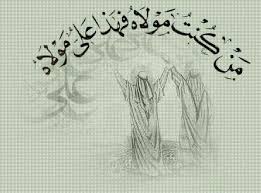 مَن كُنتُ مَولَاهُ فَهذَا عَلىٌّ مَولَاهُ